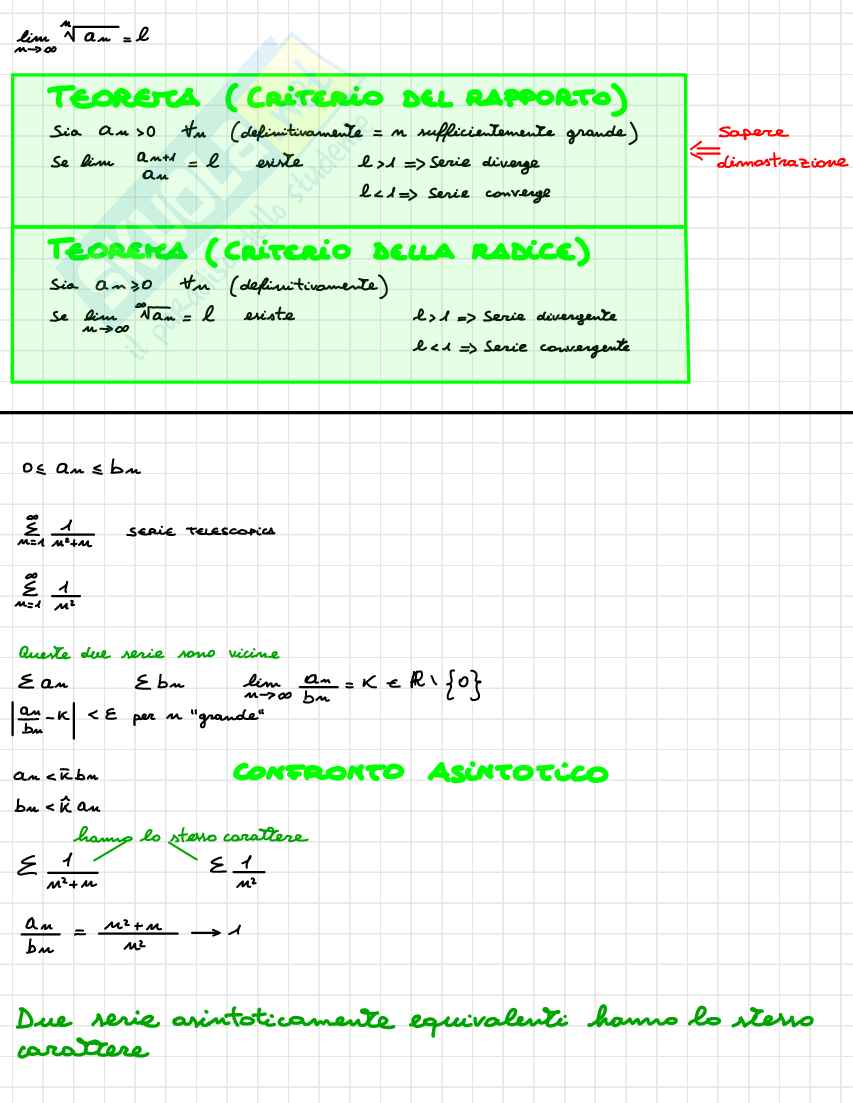 lim n→∞ ⁿ√an = l
TEOREMA (CRITERIO DEL RAPPORTO)
Sia an > 0 ∀n (definitivamente = n sufficientemente grande)
Se lim an+1/an = l esiste l > 1 => Serie diverge
l < 1 => Serie converge
<= Sapere dimostrazione
TEOREMA (CRITERIO DELLA RADICE)
Sia an ≥ 0 ∀n (definitivamente)
Se lim n→∞ ∞√an = l esiste l > 1 => Serie divergente
l < 1 => Serie convergente
SKUOLA.NET
il paradiso dello studente
0 ≤ an ≤ bn
∞ Σ n=1 1/n²+n SERIE TELESCOPICA
∞ Σ n=1 1/n²
Queste due serie sono vicine
Σ an Σ bn lim n→∞ an/bn = K ∈ ℝ \ {0}
|an/bn - K| < ε per n "grande"
an < K̄ bn CONFRONTO ASINTOTICO
bn < K̂ an
hanno lo stesso carattere
Σ 1/n²+n Σ 1/n²
an/bn = n²+n/n² → 1
Due serie asintoticamente equivalenti hanno lo stesso
carattere